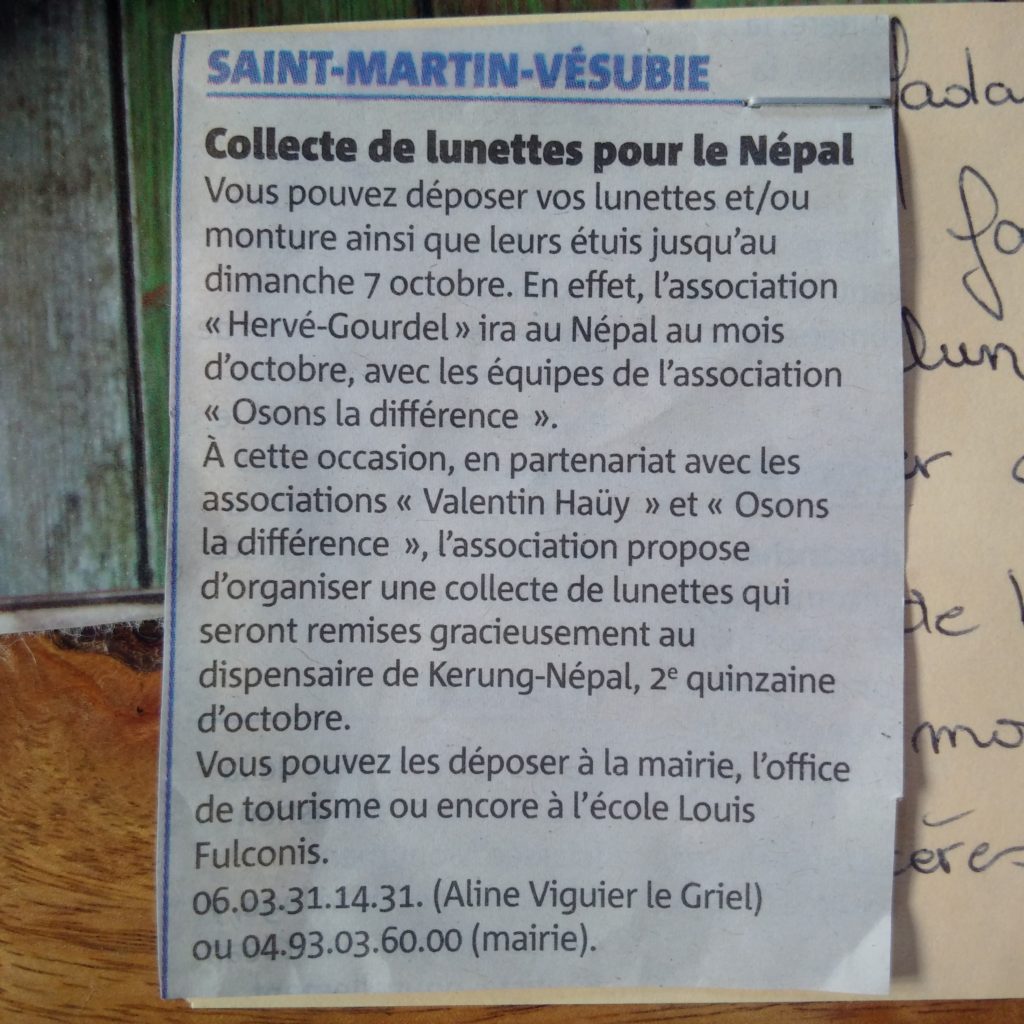 SAINT-MARTIN-VÉSUBIE
Collecte de lunettes pour le Népal
Vous pouvez déposer vos lunettes et/ou
monture ainsi que leurs étuis jusqu'au
dimanche 7 octobre. En effet, l'association
« Hervé-Gourdel » ira au Népal au mois
d'octobre, avec les équipes de l'association
« Osons la différence ».
À cette occasion, en partenariat avec les
associations « Valentin Haüy » et « Osons
la différence », l'association propose
d'organiser une collecte de lunettes qui
seront remises gracieusement au
dispensaire de Kerung-Népal, 2e quinzaine
d'octobre.
Vous pouvez les déposer à la mairie, l'office
de tourisme ou encore à l'école Louis
Fulconis.
06.03.31.14.31. (Aline Viguier le Griel)
ou 04.93.03.60.00 (mairie).